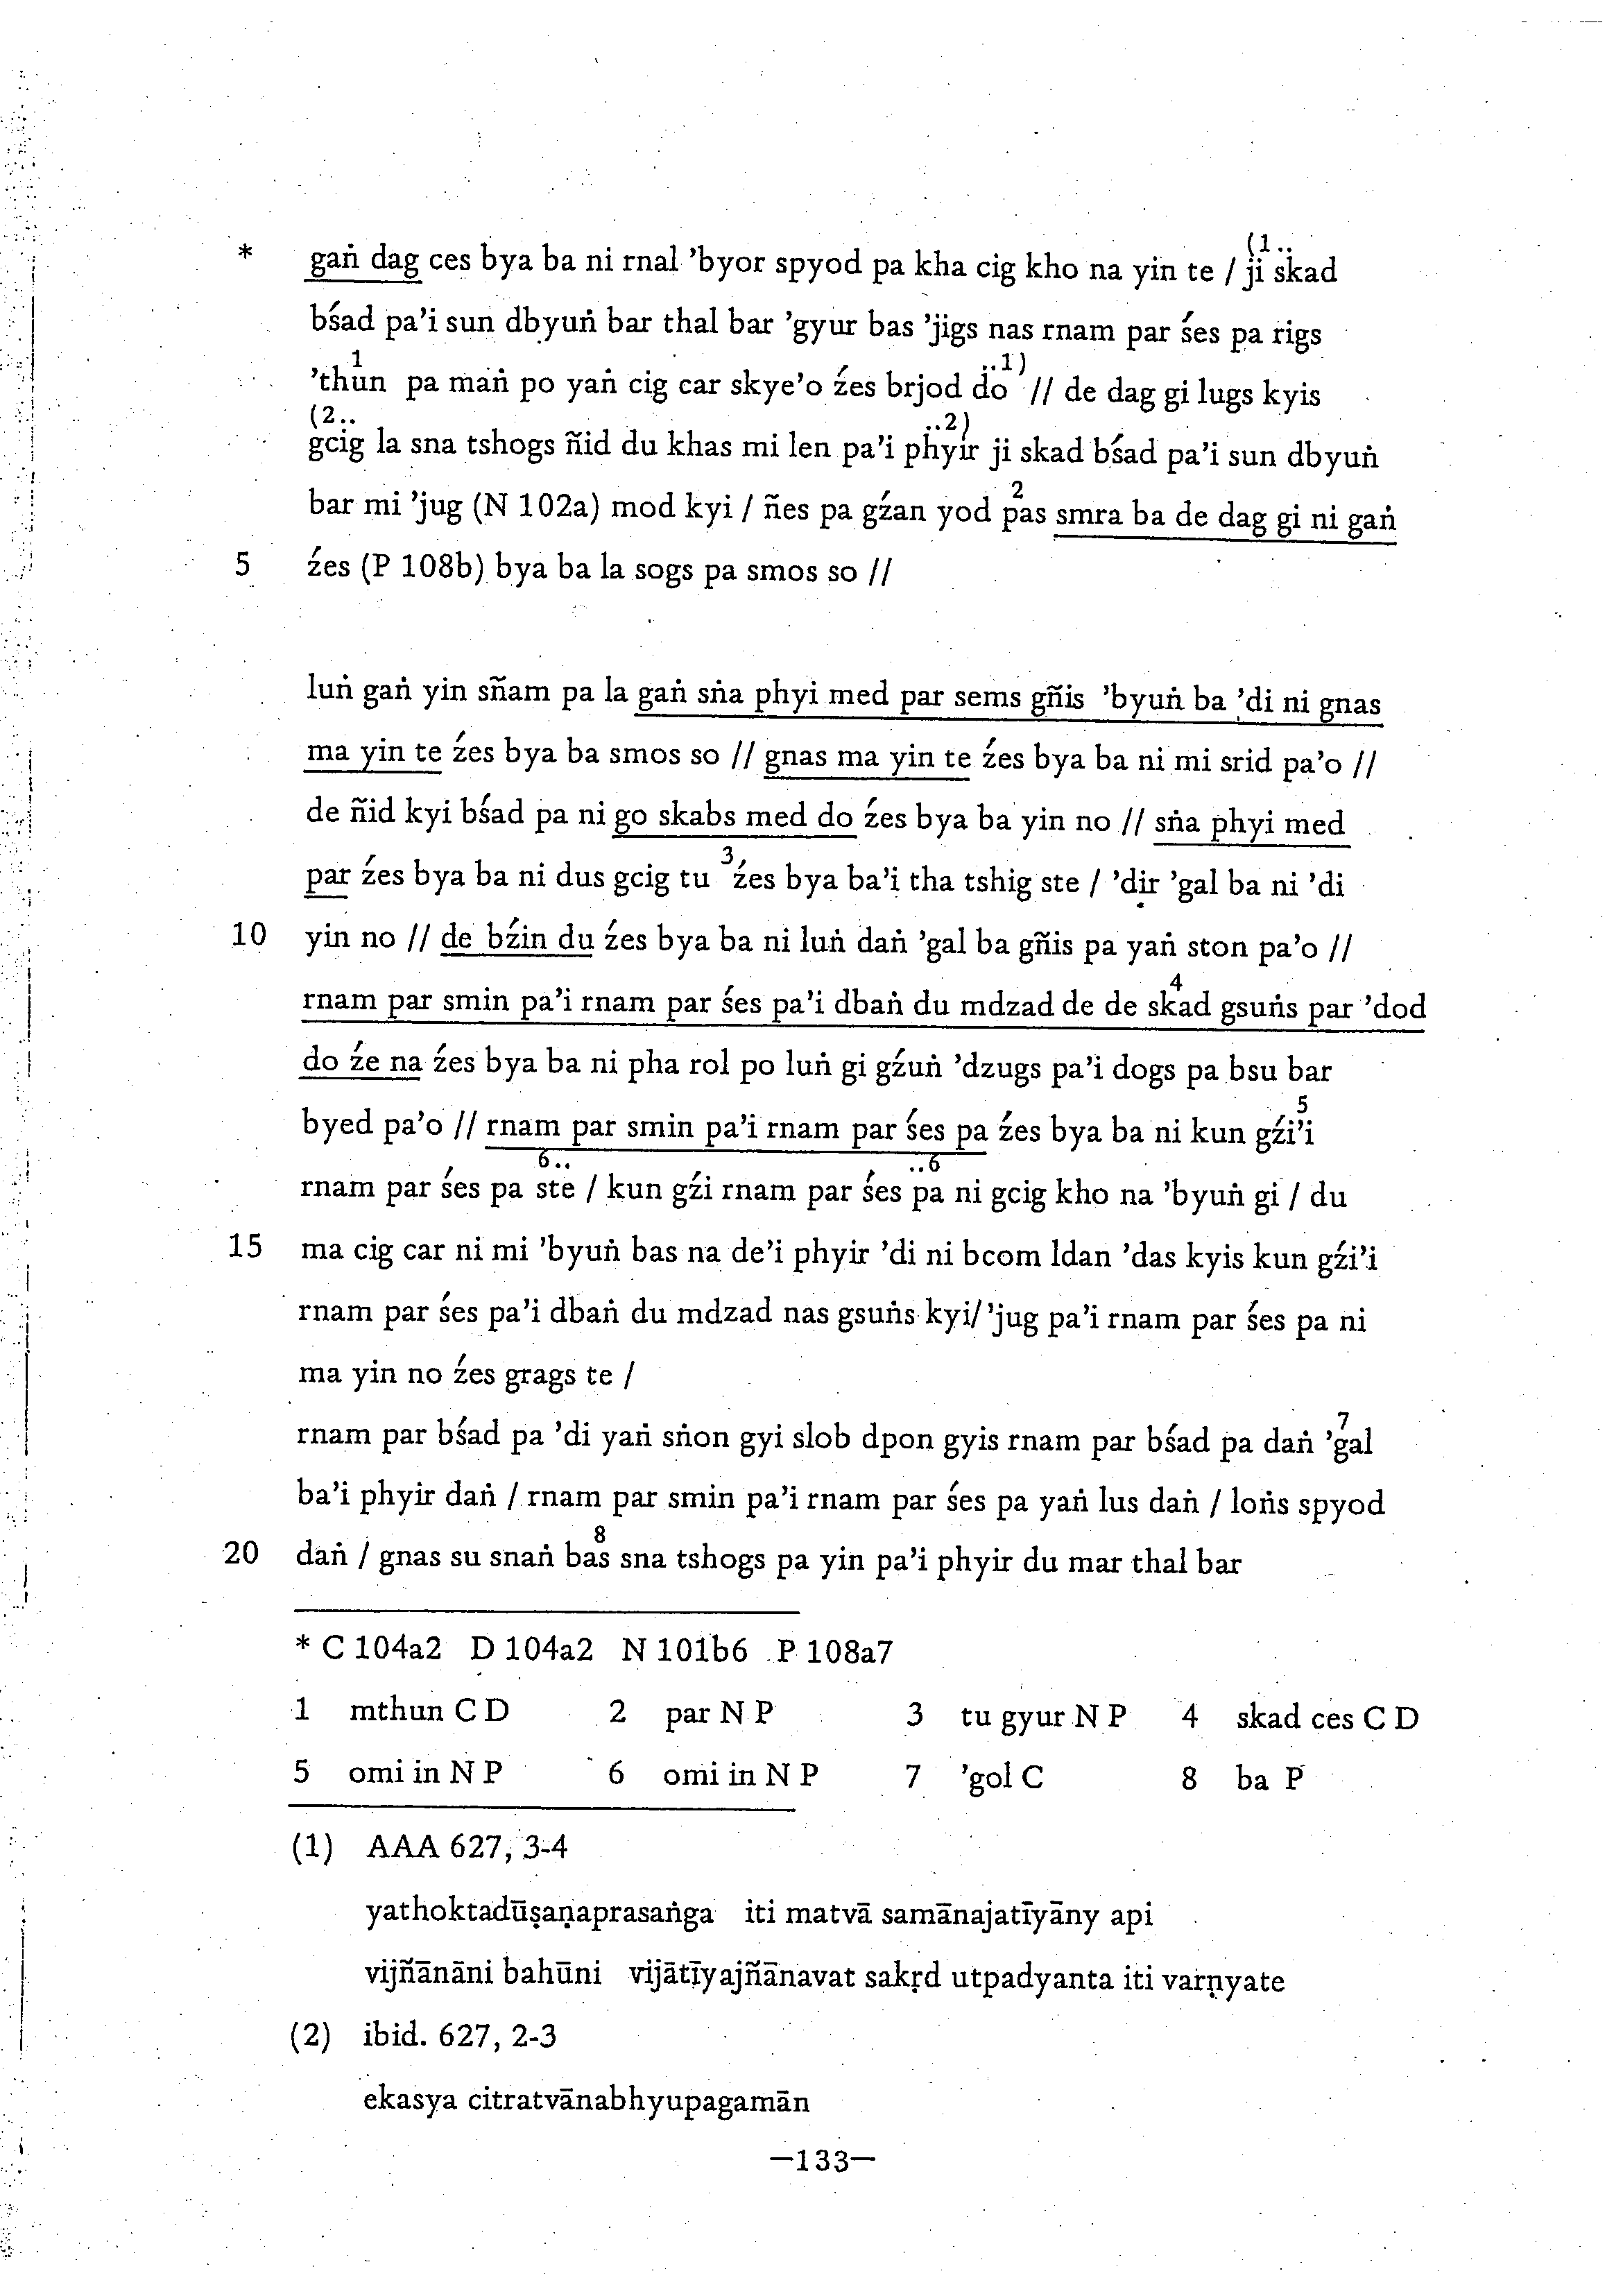 * gaṅ dag ces bya ba ni rnal ’byor spyod pa kha cig kho na yin te / (1‥ ji skad
bśad pa’i sun dbyuṅ bar thal bar ’gyur bas ’jigs nas rnam par śes pa rigs
’thun1 pa maṅ po yaṅ cig car skye’o źes brjod do ‥1) // de dag gi lugs kyis
(2‥ gcig la sna tshogs ñid du khas mi len pa’i phyir ‥2) ji skad bśad pa’i sun dbyuṅ
bar mi ’jug (N 102a) mod kyi / ñes pa gźan yod pas2 smra ba de dag gi ni gaṅ
5 źes (P 108b) bya ba la sogs pa smos so //
luṅ gaṅ yin sñam pa la gaṅ sṅa phyi med par sems gñis ’byuṅ ba ’di ni gnas
ma yin te źes bya ba smos so // gnas ma yin te źes bya ba ni mi srid pa’o //
de ñid kyi bśad pa ni go skabs med do źes bya ba yin no // sṅa phyi med
par źes bya ba ni dus gcig tu 3 źes bya ba’i tha tshig ste / ’dir ’gal ba ni ’di
10 yin no // de bźin du źes bya ba ni luṅ daṅ ’gal ba gñis pa yaṅ ston pa’o //
rnam par smin pa’i rnam par śes pa’i dbaṅ du mdzad de de skad4 gsuṅs par ’dod
do źe na źes bya ba ni pha rol po luṅ gi gźuṅ ’dzugs pa’i dogs pa bsu bar
byed pa’o // rnam par smin pa’i rnam par śes pa źes bya ba ni kun gźi’i5
rnam par śes pa 6‥ ste / kun gźi rnam par śes pa ‥6 ni gcig kho na ’byuṅ gi / du
15 ma cig car ni mi ’byuṅ bas na de’i phyir ’di ni bcom ldan ’das kyis kun gźi’i
rnam par śes pa’i dbaṅ du mdzad nas gsuṅs kyi/ ’jug pa’i rnam par śes pa ni
ma yin no źes grags te /
rnam par bśad pa ’di yaṅ sṅon gyi slob dpon gyis rnam par bśad pa daṅ ’gal7
ba’i phyir daṅ / rnam par smin pa’i rnam par śes pa yaṅ lus daṅ / loṅs spyod
20 daṅ / gnas su snaṅ bas8 sna tshogs pa yin pa’i phyir du mar thal bar
* C 104a2 D 104a2 N 101b6 P 108a7
1 mthun C D 2 par N P 3 tu gyur N P 4 skad ces C D
5 omi in N P 6 omi in N P 7 ’gol C 8 ba P
(1) AAA 627, 3-4
yathoktadūṣaṇaprasaṅga iti matvā samānajatīyāny api
vijñānāni bahūni vijātīyajñānavat sakṛd utpadyanta iti varṇyate
(2) ibid. 627, 2-3
ekasya citratvānabhyupagamān
—133—